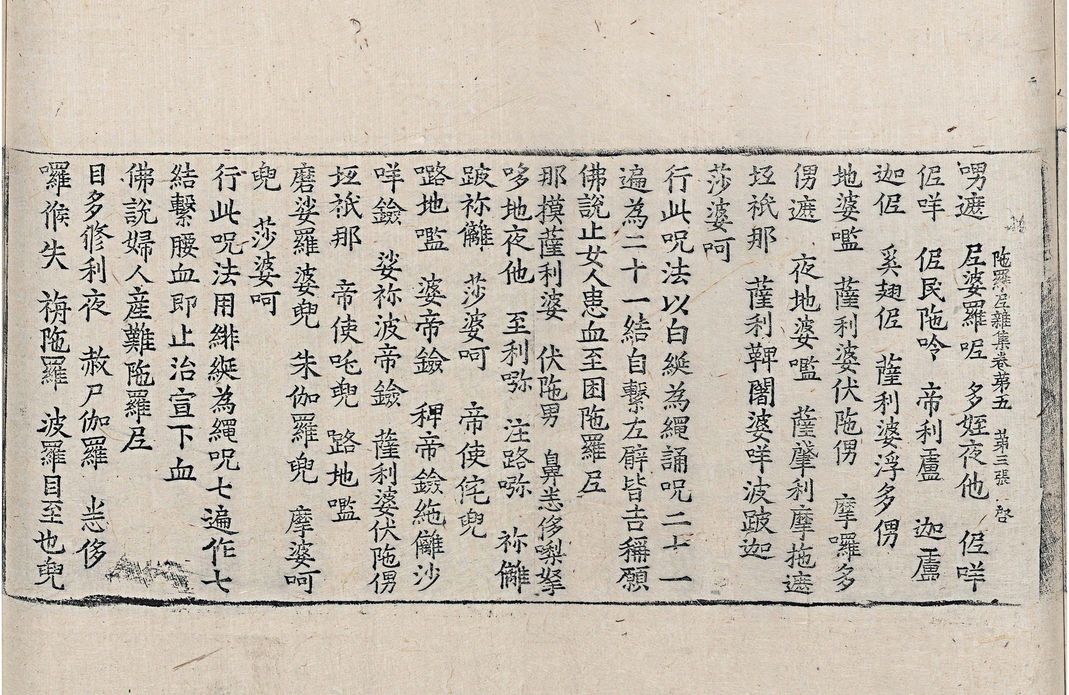 陁羅尼雜集卷第五　第三張　啓
㗚遮　尼婆羅呢　多姪夜他　伹咩
伹咩　伹民陁唅　帝利盧　迦盧
迦伹　奚趐伹　薩利婆浮多㑥
地婆㘕　薩利婆伏陁㑥　摩囉多
㑥遮　夜地婆㘕　薩肇利摩拖遮
坘祇那　薩利鞞闍婆咩波跛迦
莎婆呵
行此呪法以白綖為繩誦呪二十一
遍為二十一結自繫左臂皆吉稱願
佛說止女人患血至困陁羅尼
那摸薩利婆　伏陁男　鼻悉侈㗚拏
哆地夜他　至利㘑　注路㘑　袮離
跛袮離　莎婆呵　帝使侘兜
嚕地㘕　婆帝鐱　稗帝鐱絁離沙
咩鐱　娑袮波帝鐱　薩利婆伏陁㑥
坘祇那　帝使吒兜　路地㘕
磨娑羅婆兜　朱伽羅兜　摩婆呵
兜　莎婆呵
行此呪法用緋綖為繩呪七遍作七
結繫腰血即止治宣下血
佛說婦人産難陁羅尼
目多修利夜　赦尸伽羅　悉侈
囉候失　栴陁羅　波羅目至也兜